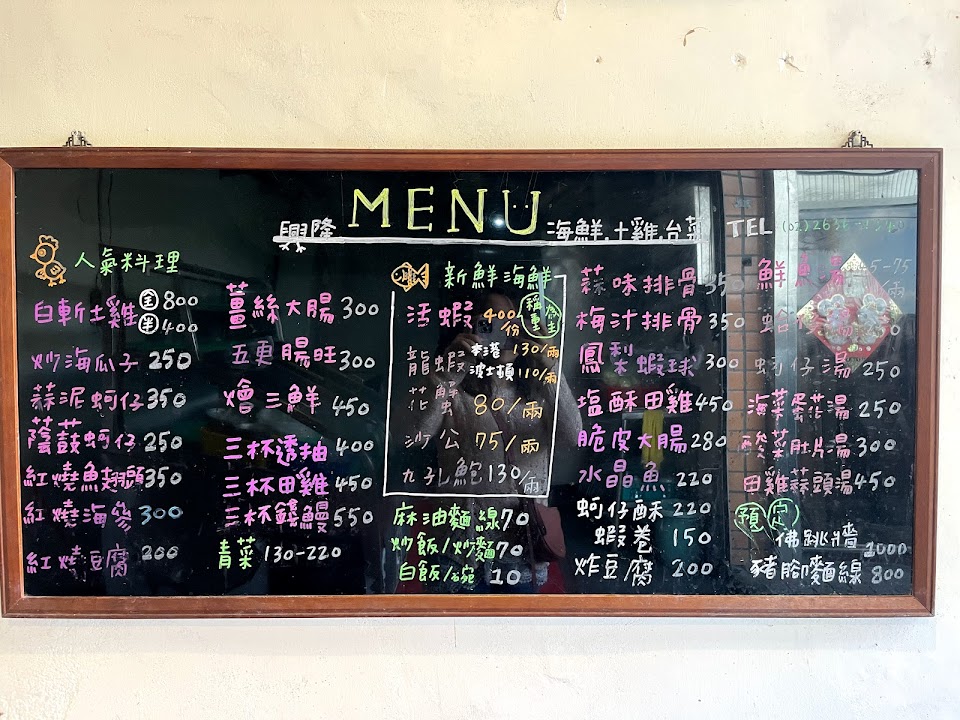 MENU
興隆 海鮮.土雞.台菜 TEL (02)2636
人氣料理
白斬土雞 全800
半400
炒海瓜子 250
蒜泥蚵仔 350
蔭鼓蚵仔 250
紅燒魚翅頭 350
紅燒海參 300
紅燒豆腐 200
薑絲大腸 300
五更腸旺 300
燴三鮮 450
三杯透抽 400
三杯田雞 450
三杯鱔鰻 550
青菜 130-220
新鮮海鮮
活蝦 400/份
稱重
龍蝦 本港 130/兩
波士頓 110/兩
花蟹 80/兩
沙公 75/兩
九孔鮑 130/兩
麻油麵線 70
炒飯/炒麵 70
白飯/碗 10
蒜味排骨 350
梅汁排骨 350
鳳梨蝦球 300
塩酥田雞 450
脆皮大腸 280
水晶魚 220
蚵仔酥 220
蝦卷 150
炸豆腐 200
鮮魚湯 5-75/兩
蚵仔湯 250
海菜蛋花湯 250
酸菜肚片湯 300
田雞蒜頭湯 450
預定
佛跳墻 2000
豬腳麵線 800